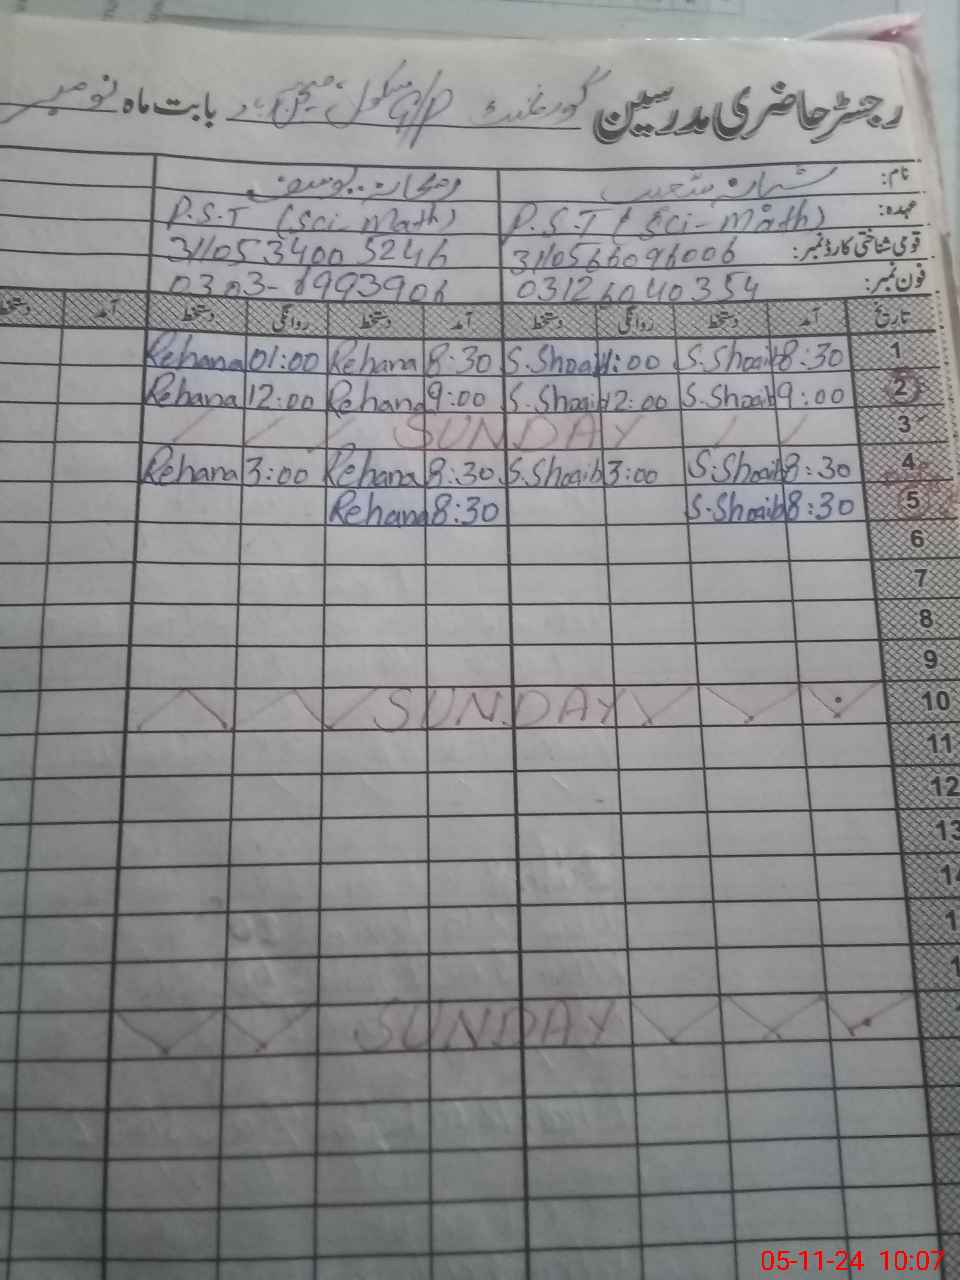 رجسٹر حاضری مدرسین گورنمنٹ G/P سکول بابت ماہ نومبر
نام: شبانہ شعیب ریحانہ یوسف
عہدہ: P.S.T (Sci-Math) P.S.T (Sci-Math)
قومی شناختی کارڈ نمبر: 3110566096006 3110534005246
فون نمبر: 03126040354 0303-6993906
تاریخ آمد دستخط روانگی دستخط آمد دستخط روانگی دستخط آمد دستخط
1 8:30 S.Shoaib 1:00 S.Shoaib 8:30 Rehana 01:00 Rehana
2 9:00 S.Shoaib 12:00 S.Shoaib 9:00 Rehana 12:00 Rehana
3 SUNDAY
4 8:30 S.Shoaib 3:00 S.Shoaib 8:30 Rehana 3:00 Rehana
5 8:30 S.Shoaib 8:30 Rehana
6
7
8
9
10 SUNDAY
11
12
13
SUNDAY
05-11-24 10:07